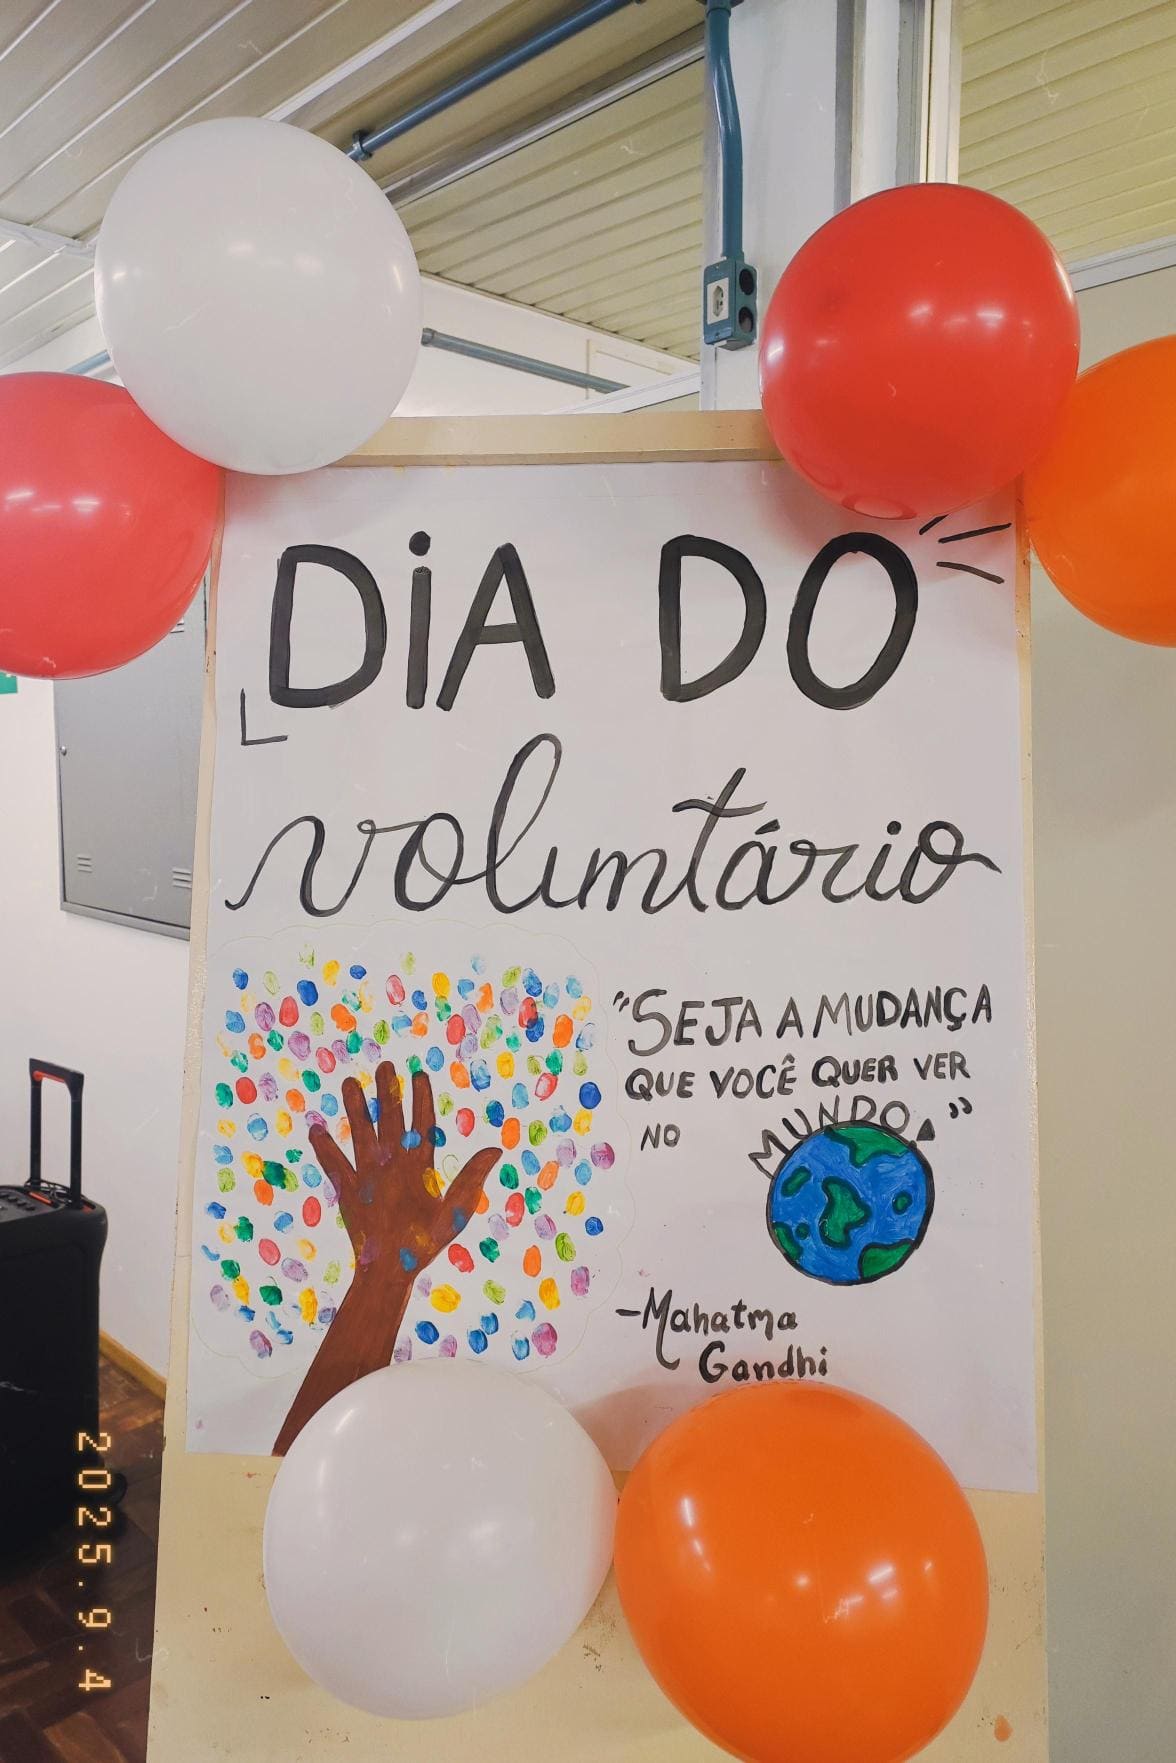 DiA DO
voluntário
"SEJA A MUDANÇA
QUE VOCÊ QUER VER
NO MUNDO."
-Mahatma
Gandhi
2025.9.4